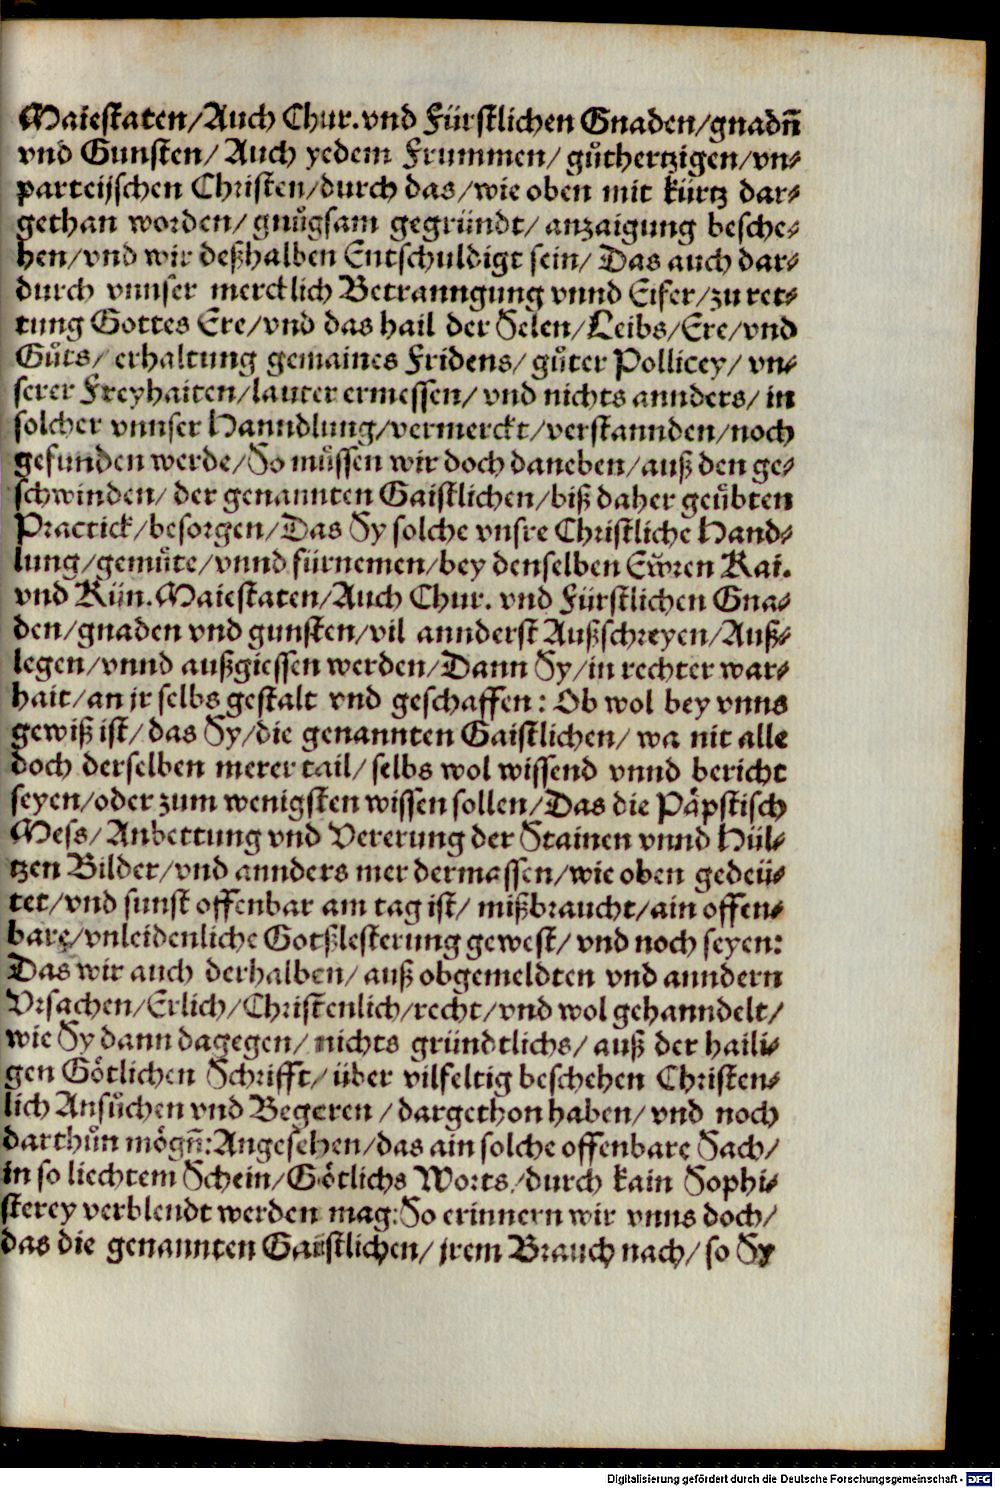 Maiestaten/Auch Chur.vnd Fürstlichen Gnaden/gnadn̄
vnd Gunsten/ Auch yedem Frummen/ gůthertzigen/vn⸗
parteijschen Christen/durch das/wie oben mit kürtz dar⸗
gethan worden/ gnůgsam gegründt/ anzaigung besche⸗
hen/vnd wir deßhalben Entschuldigt sein/ Das auch dar⸗
durch vnnser mercklich Betranngung vnnd Eifer/zu ret⸗
tung Gottes Ere/vnd das hail der Selen/Leibs/Ere/vnd
Gůts/ erhaltung gemaines Fridens/ gůter Pollicey/ vn⸗
serer Freyhaiten/lauter ermessen/ vnd nichts annders/ in
solcher vnnser Hanndlung/vermerckt/verstannden/noch
gefunden werde/So müssen wir doch daneben/auß den ge⸗
schwinden/ der genannten Gaistlichen/biß daher geübten
Practick/besorgen/Das Sy solche vnsre Christliche Hand⸗
lung/gemüte/vnnd fürnemen/bey denselben Eẅren Kai.
vnd Kün.Maiestaten/Auch Chur. vnd Fürstlichen Gna⸗
den/gnaden vnd gunsten/vil annderst Außschreyen/Auß⸗
legen/vnnd außgiessen werden/Dann Sy/in rechter war⸗
hait/an jr selbs gestalt vnd geschaffen: Ob wol bey vnns
gewiß ist/ das Sy/die genannten Gaistlichen/ wa nit alle
doch derselben merer tail/ selbs wol wissend vnnd bericht
seyen/oder zum wenigsten wissen sollen/Das die Päpstisch
Mess/Anbettung vnd Vererung der Stainen vnnd Hül⸗
tzen Bilder/vnd annders mer dermassen/wie oben gedeü⸗
tet/vnd sunst offenbar am tag ist/ mißbraucht/ain offen⸗
bare/vnleidenliche Gotßlesterung gewest/ vnd noch seyen:
Das wir auch derhalben/ auß obgemeldten vnd anndern
Vrsachen/Erlich/Christenlich/recht/vnd wol gehanndelt/
wie Sy dann dagegen/ nichts gründtlichs/ auß der haili⸗
gen Götlichen Schrifft/ über vilfeltig beschehen Christen⸗
lich Ansůchen vnd Begeren /dargethon haben/ vnd noch
darthůn mögn̄:Angesehen/das ain solche offenbare Sach/
in so liechtem Schein/Götlichs Worts/durch kain Sophi⸗
sterey verblendt werden mag:So erinnern wir vnns doch/
das die genannten Gaistlichen/ jrem Brauch nach/ so Sy
Digitalisierung gefördert durch die Deutsche Forschungsgemeinschaft - DFG